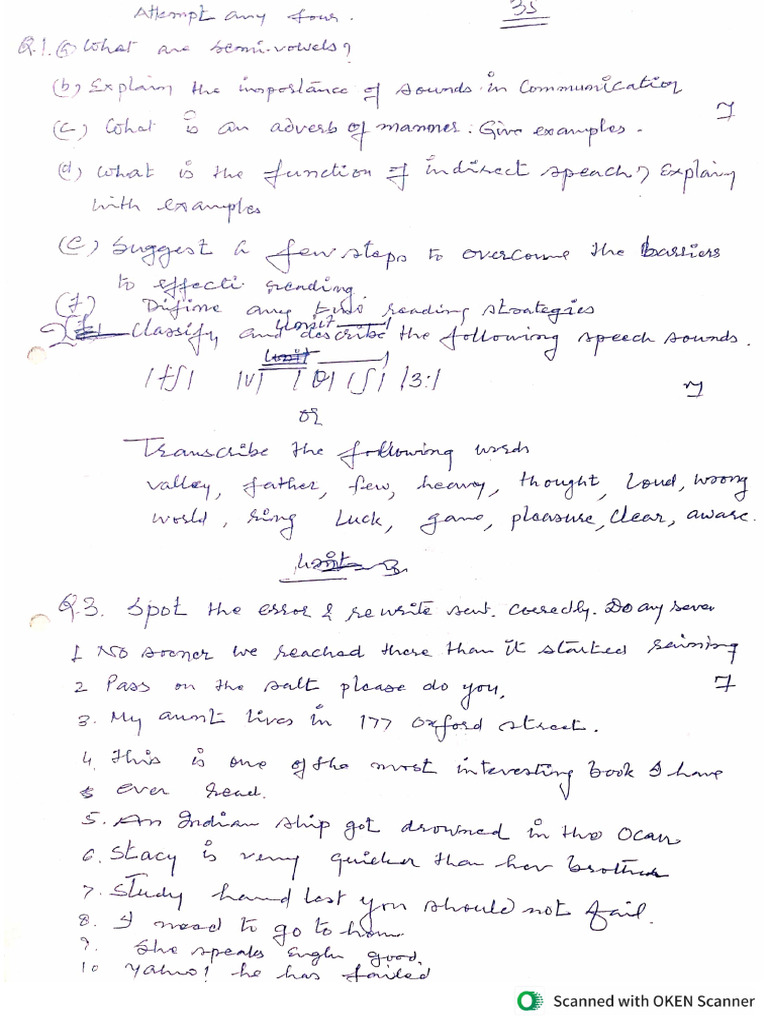 Attempt any four.
35
Q.1. (a) What are semi-vowels?
(b) Explain the importance of sounds in communication
7
(c) What is an adverb of manner. Give examples.
(d) What is the function of indirect speach? Explain
with examples
(e) Suggest a few steps to overcome the barriers
to effecti reading.
(f) Difine any two reading strategies
Unit
Classify and describe the following speech sounds.
Unit
/tʃ/ /v/ /θ/ /ʃ/ /3:/
7
or
Transcribe the following words
valley, father, few, heavy, thought, loud, wrong
world, ring luck, game, pleasure, clear, aware.
Unit 3
Q.3. Spot the error & rewrite sent. correctly. Do any seven
1 No sooner we reached there than it started raining
2 Pass on the salt please do you,
7
3. My aunt lives in 177 oxford street.
4. This is one of the most interesting book I have
ever read.
5. An Indian ship got drowned in the Ocan
6. Stacy is very quicker than her brother
7. Study hard lest you should not fail.
8. I need to go to home
9. She speaks Englh good.
10 Yahoo! he has failed
Scanned with OKEN Scanner